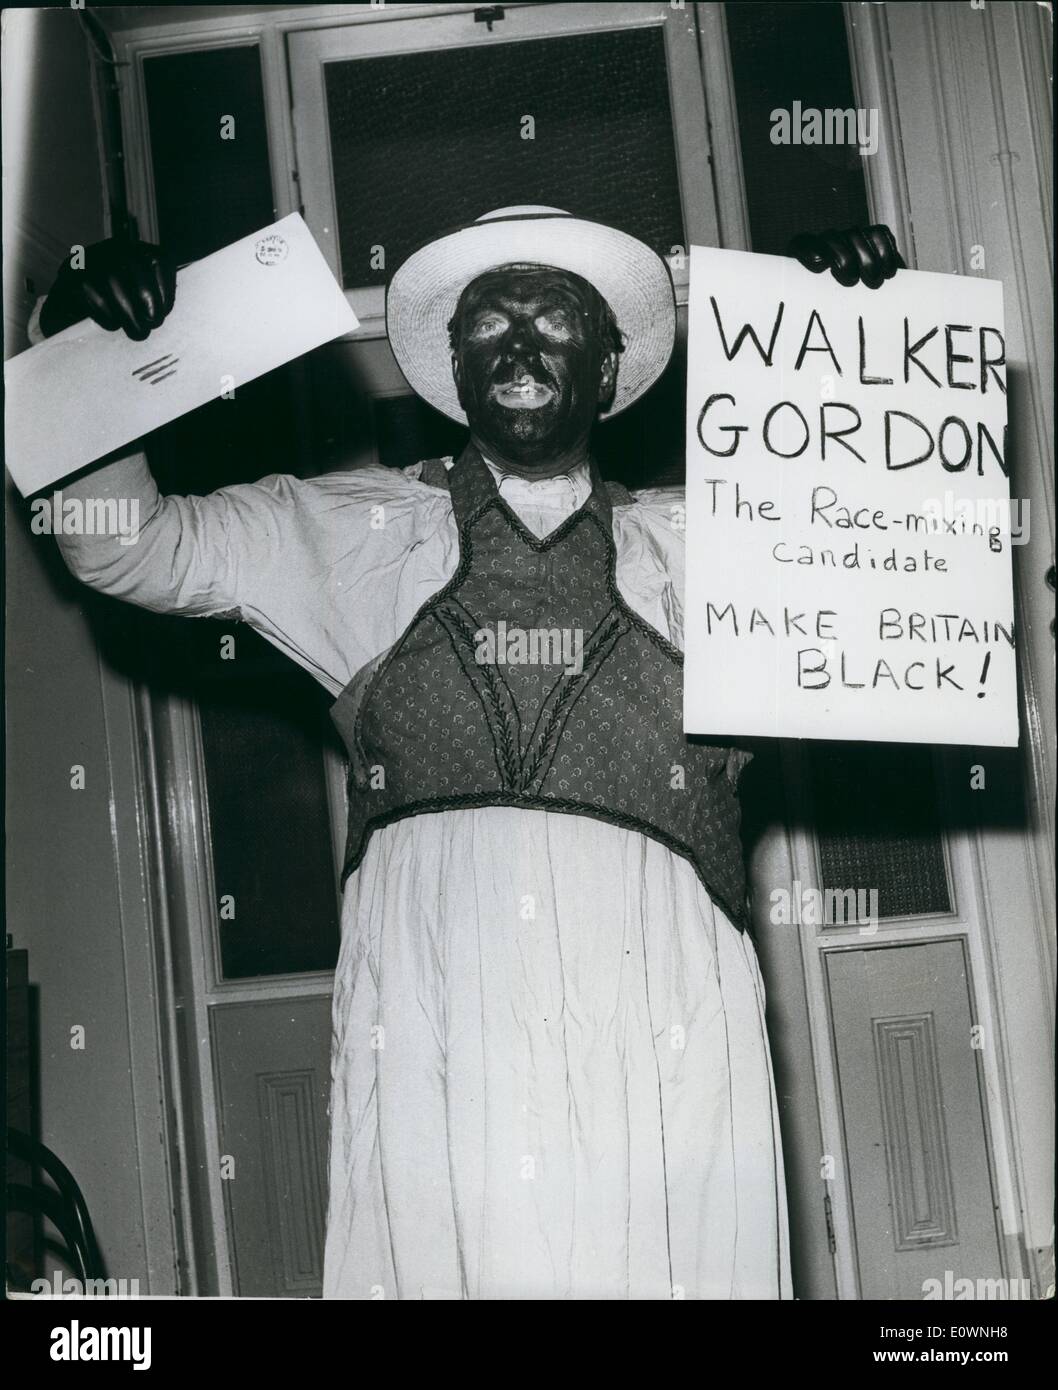 WALKER
GORDON
The Race-mixing
candidate
MAKE BRITAIN
BLACK!
alamy
alamy
Image ID: E0WNH8
www.alamy.com